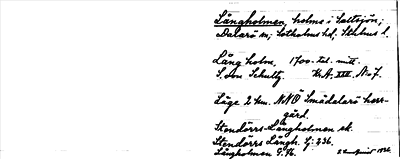 Långholmen, holme i Saltsjön;
Dalarö sn, Sotholms hd, Sthlms l.
Lång holm, 1700-tal. mitt.
S. om Schultz. K.A. XVII. No 7.
Läge 2 km. NNÖ Smådalarö herr-
gård.
Stendörrs-Långholmen sk.
Stendörrs Långh. Gj: 236.
Långholmen G. 96. 1936.